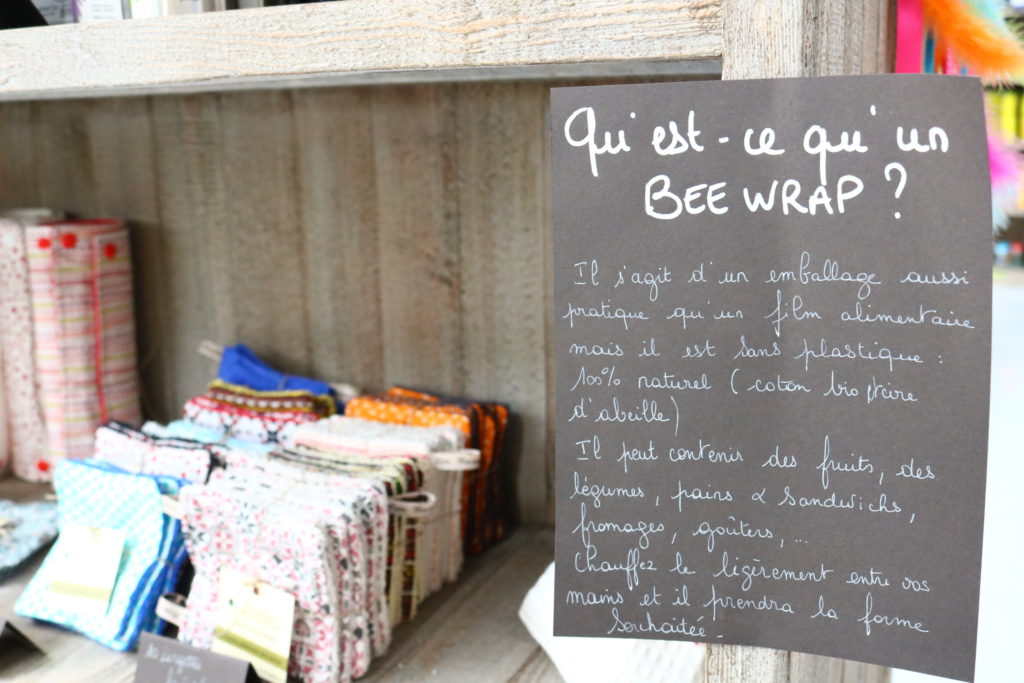 Qu'est-ce qu'un
BEE WRAP ?
Il s'agit d'un emballage aussi
pratique qu'un film alimentaire
mais il est sans plastique :
100% naturel (coton bio &
d'abeille)
Il peut contenir des fruits, des
légumes, pains & sandwichs,
fromages, goûters,...
Chauffez le légèrement entre vos
mains et il prendra la forme
souhaitée.